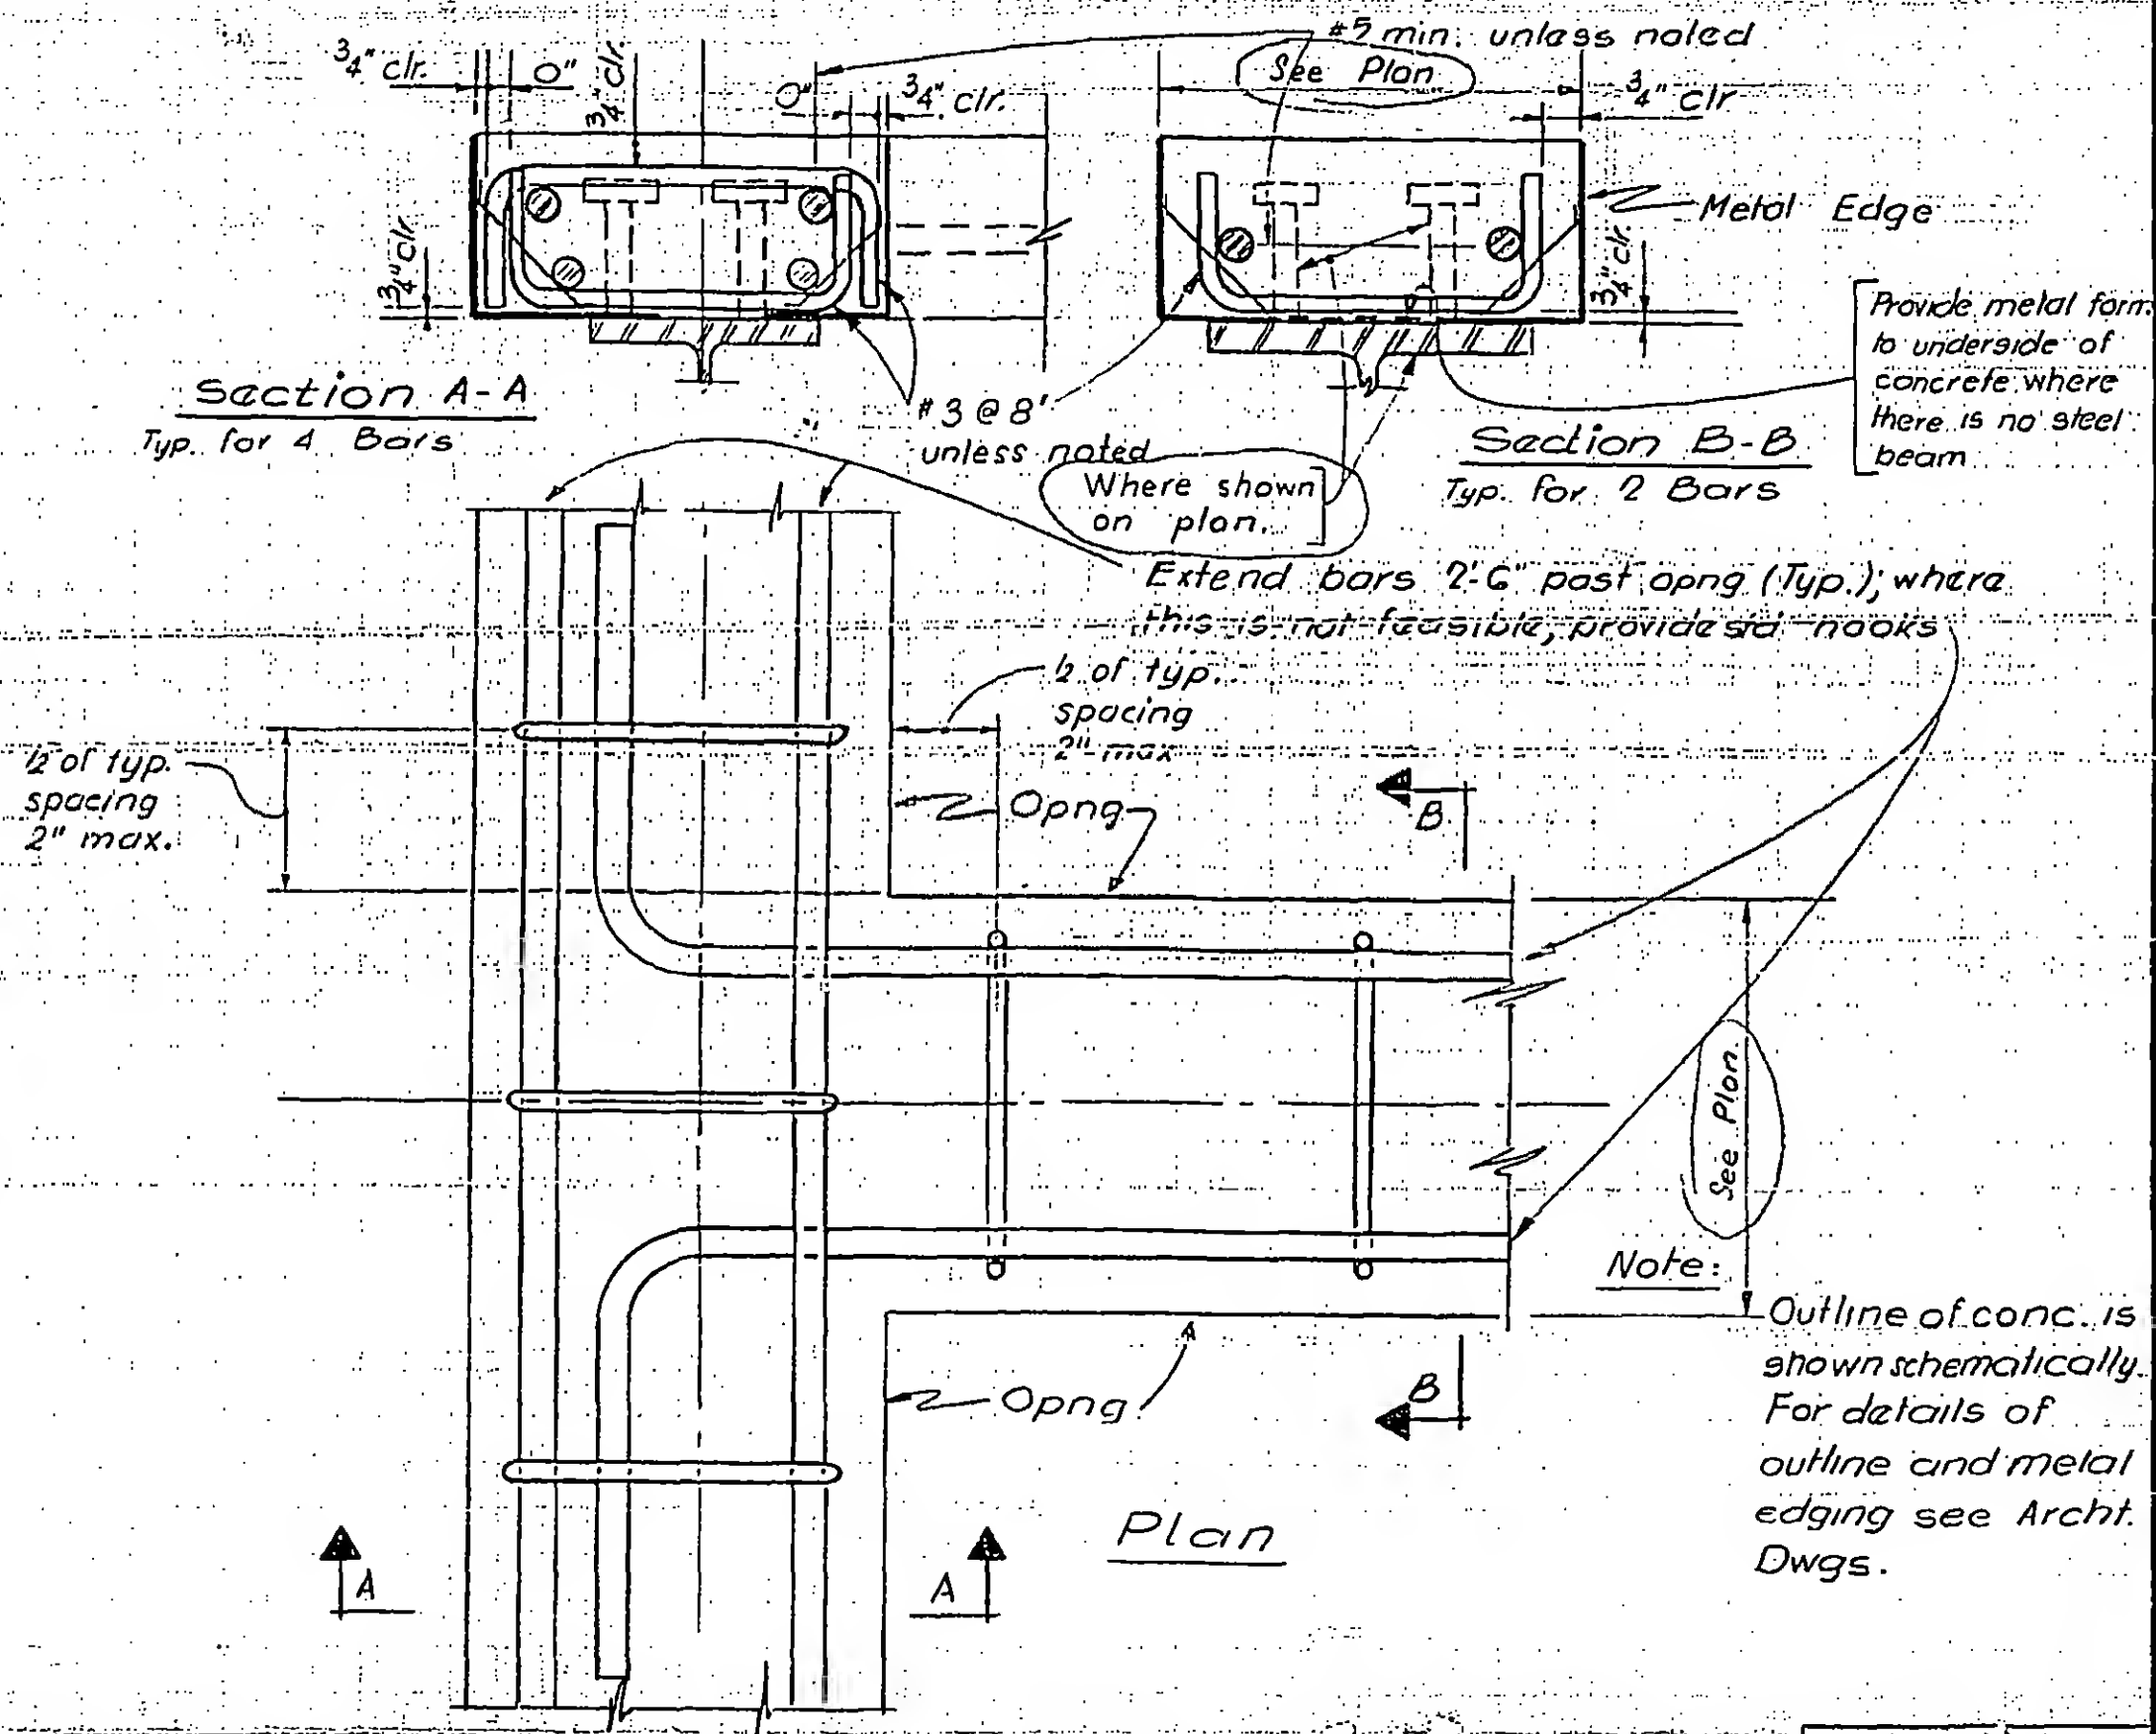 #5 min. unless noted
See Plan
3/4" clr.
0"
3/4" clr.
0"
3/4" clr.
3/4" clr
3/4" clr.
Metal Edge
3/4" clr.
Provide metal form
to underside of
concrete where
there is no steel
beam
Section A-A
Typ. for 4 Bars
#3 @ 8"
unless noted
Section B-B
Typ. for 2 Bars
Where shown
on plan.
Extend bars 2'-6" past opng (Typ.); where
this is not feasible, provide std hooks
1/2 of typ.
spacing
2" max
1/2 of typ.
spacing
2" max.
Opng
B
See Plan
Note:
Outline of conc. is
shown schematically.
For details of
outline and metal
edging see Archt.
Dwgs.
Opng
B
Plan
A
A